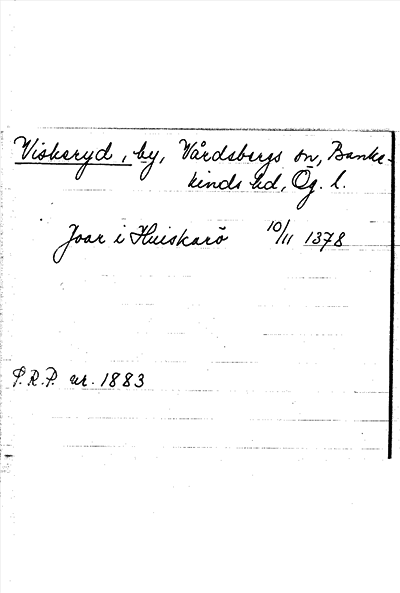 Viskeryd, by, Vårdsbergs sn, Banke-
kinds hd, Ög. l.
Joar i Huiskarö 10/11 1378
P.R.P. nr. 1883